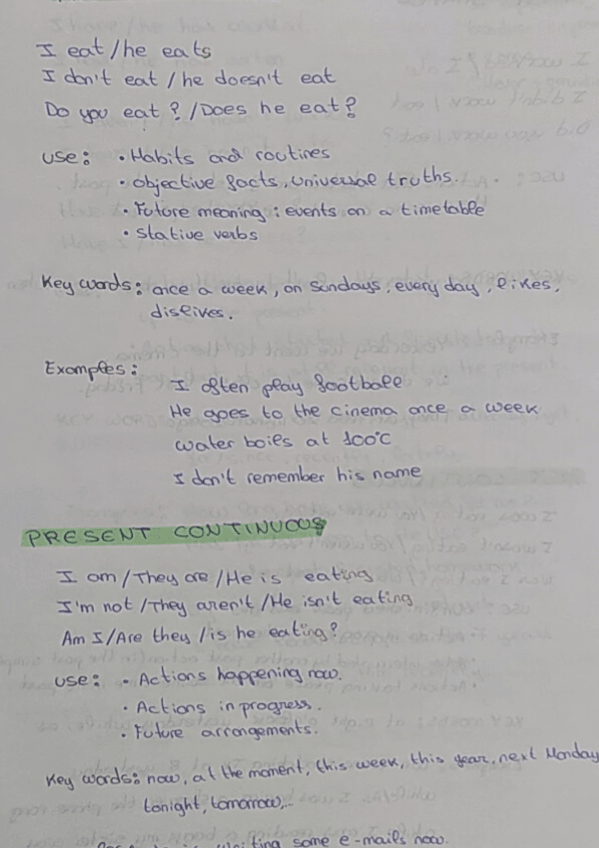 I eat /he eats
I don't eat / he doesn't eat
Do you eat ? /Does he eat?
use: • Habits and routines
• Objective facts, universal truths.
• Future meaning : events on a timetable
• Stative verbs
Key words: once a week, on Sundays, every day, likes,
dislikes.
Examples:
I often play football
He goes to the cinema once a week
water boils at 100°C
I don't remember his name
PRESENT CONTINUOUS
I am/They are /He is eating
I'm not /They aren't /He isn't eating
Am I/Are they /is he eating?
use: • Actions happening now.
• Actions in progress.
• Future arrangements.
Key words: now, at the moment, this week, this year, next Monday
tonight, tomorrow,...
some e-mails now.